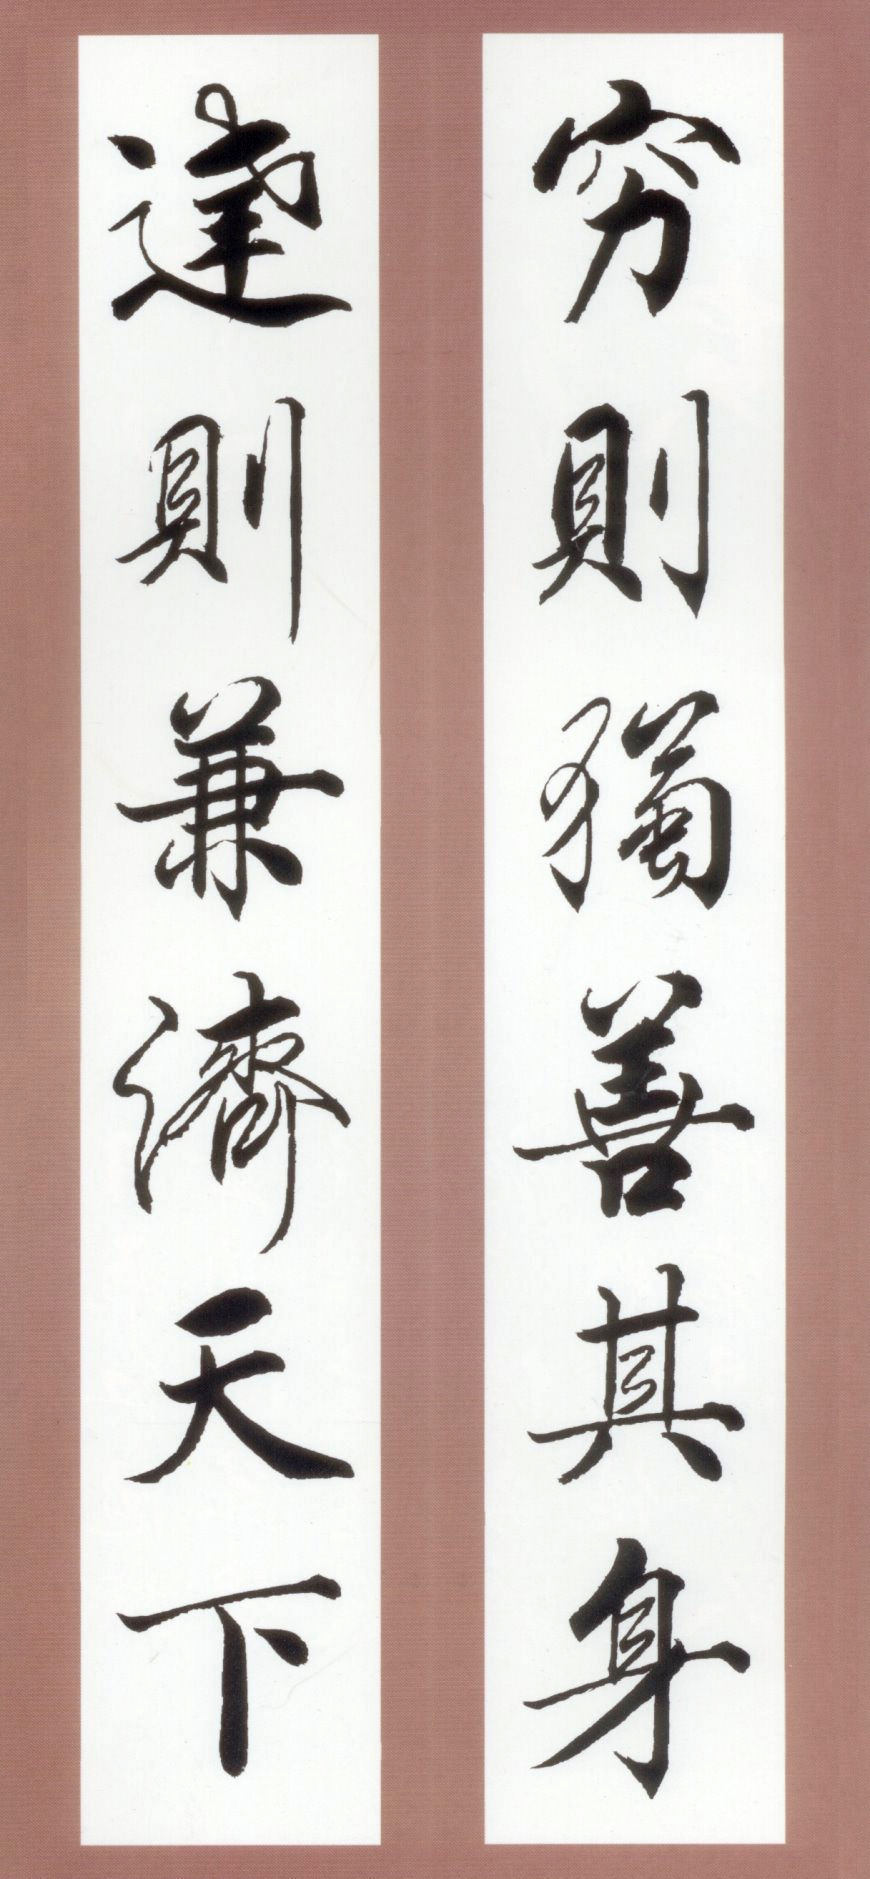 穷則獨善其身
達則兼濟天下